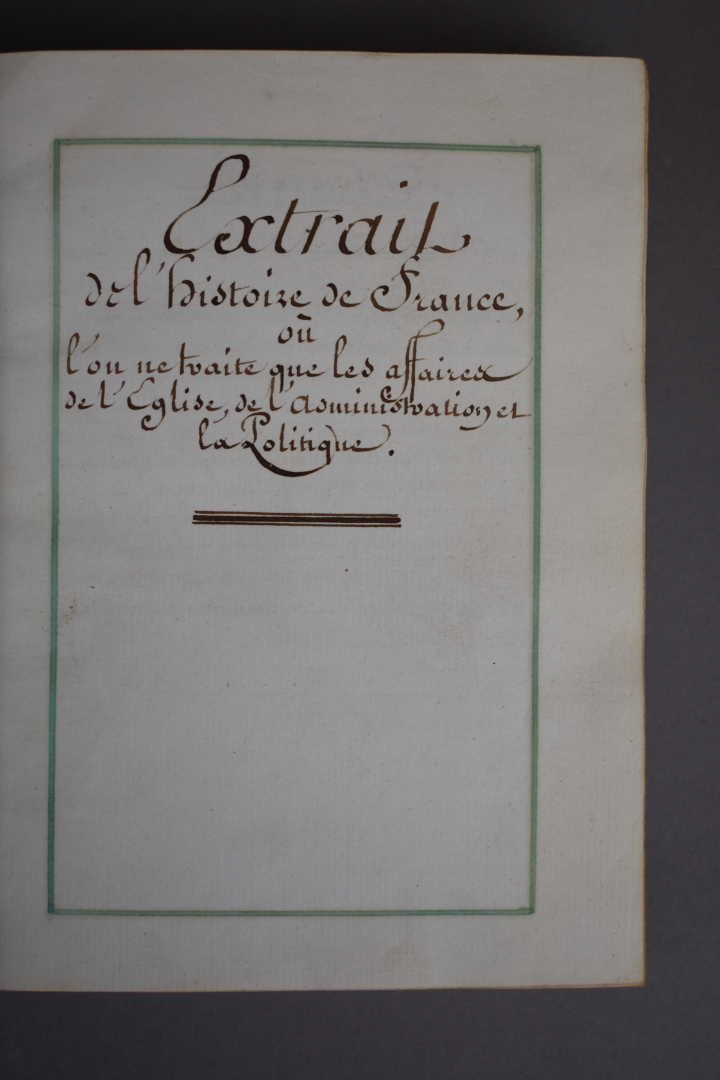 Extrait
de l'histoire de France,
où
l'on ne traite que les affaires
de l'Eglise, de l'administration et
la Politique.